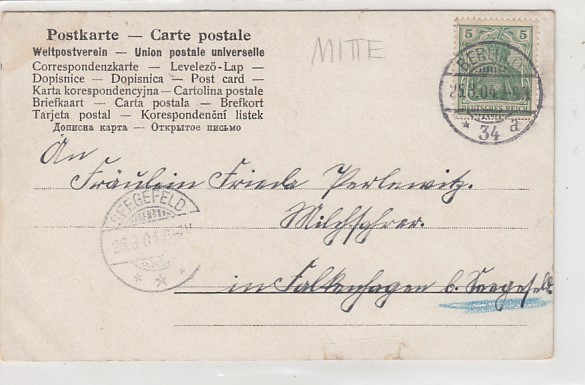 Postkarte — Carte postale
Weltpostverein — Union postale universelle
Correspondenzkarte — Levelezö-Lap —
Dopisnice — Dopisnica — Post card —
Karta korespondencyjna — Cartolina postale
Briefkaart — Carta postala — Brefkort
Tarjeta postal — Korespondenční listek
Дописна карта — Открытое письмо
MITTE
5 5
DEUTSCHES REICH
BERLIN
25.3.04
* 34 a
An
Fräulein Frieda Perlewitz.
Milchfahrer.
in Falkenhagen b. Seegefeld
SEEGEFELD
26.3.04
* * *